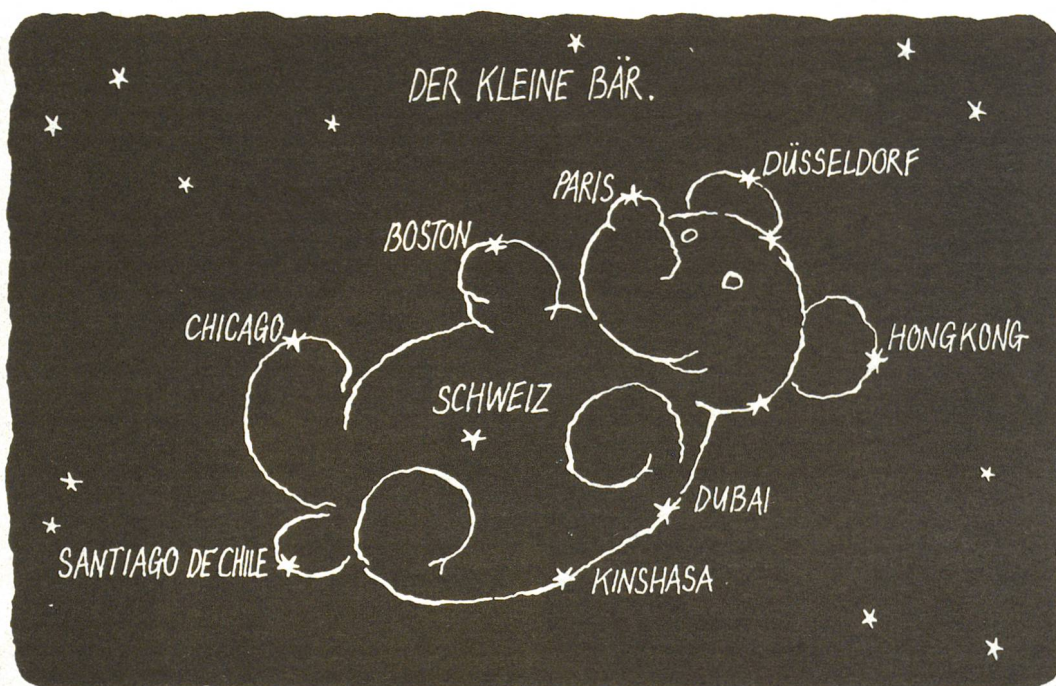 DER KLEINE BÄR.
DÜSSELDORF
PARIS
BOSTON
CHICAGO
HONGKONG
SCHWEIZ
DUBAI
SANTIAGO DE CHILE
KINSHASA